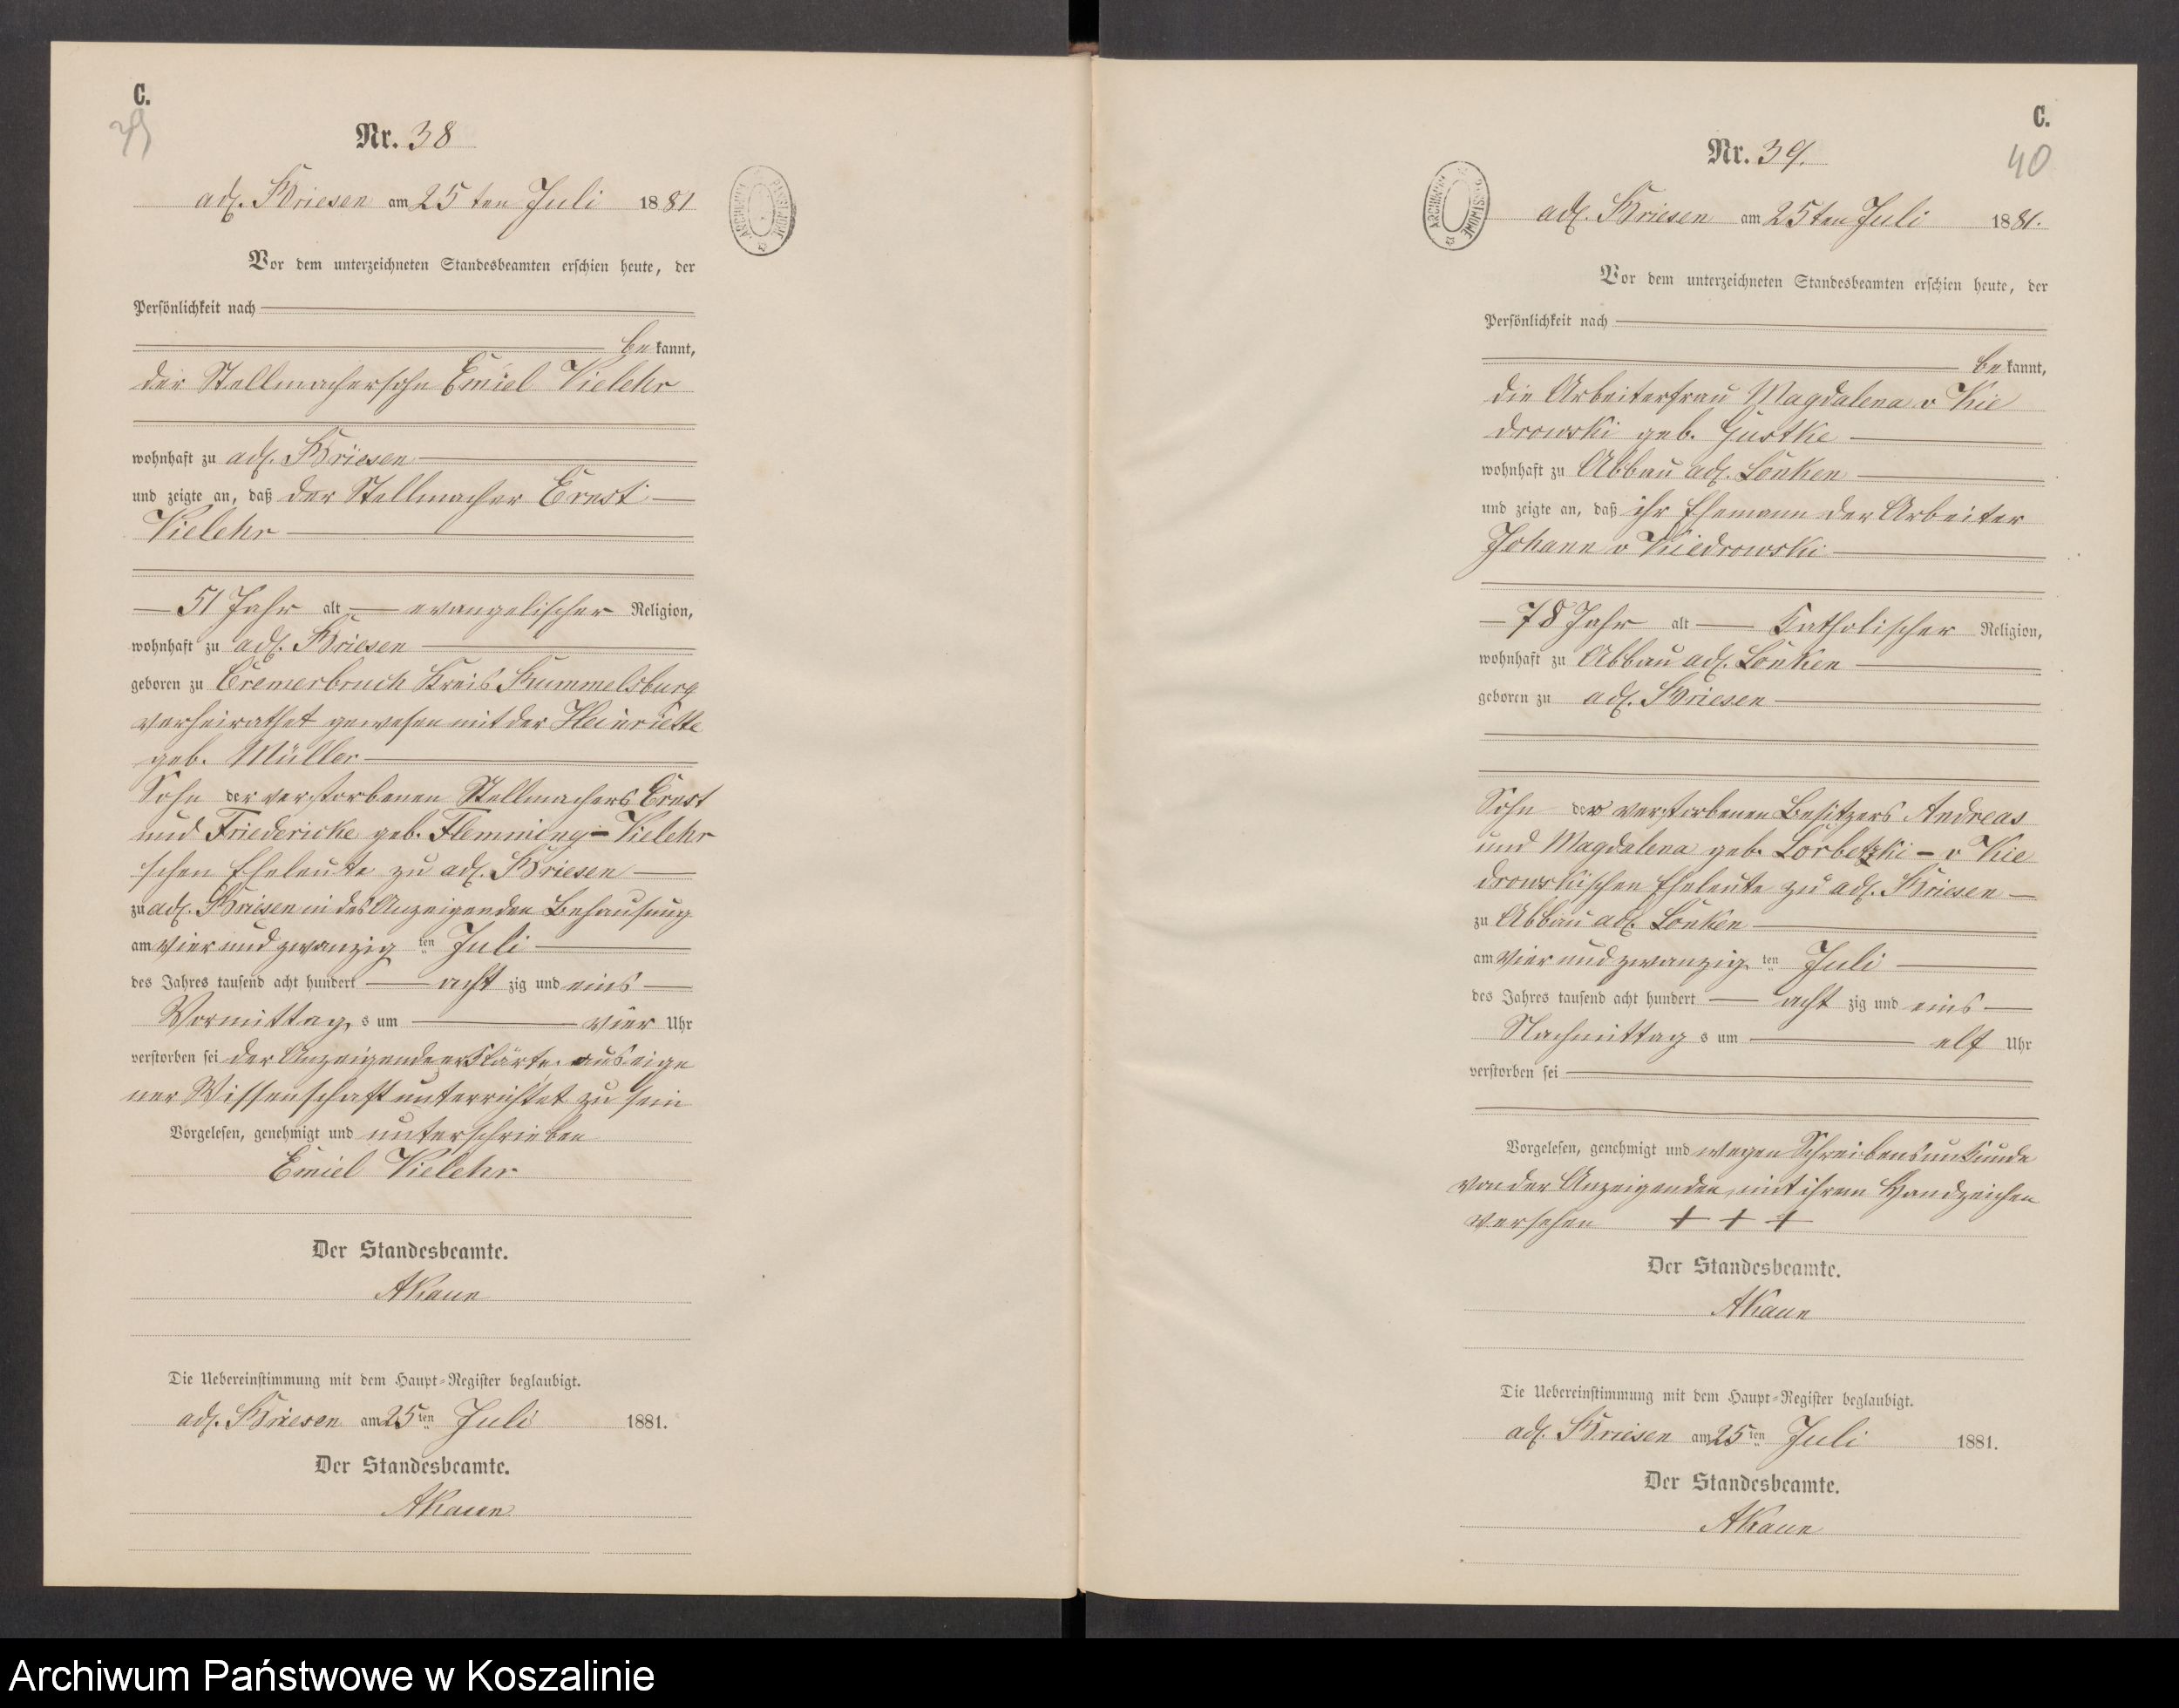 C.
Nr. 38
adl. Briesen am 25ten Juli 1881
Vor dem unterzeichneten Standesbeamten erschien heute, der
Persönlichkeit nach
bekannt,
der Stellmachersohn Emiel Vielehr
wohnhaft zu adl. Briesen
und zeigte an, daß der Stellmacher Ernst
Vielehr
51 Jahr alt evangelischer Religion,
wohnhaft zu adl. Briesen
geboren zu Cremerbruch Kreis Rummelsburg
verheirathet gewesen mit der Heinriette
geb. Müller
Sohn der verstorbenen Stellmachers Ernst
und Friedericke geb. Flemming - Vielehr
'schen Eheleute zu adl. Briesen
zu adl. Briesen in des Anzeigenden Behausung
am vier und zwanzig ten Juli
des Jahres tausend acht hundert acht zig und eins
Vormittags um vier Uhr
verstorben sei der Anzeigende erklärte, aus eige
ner Wissenschaft unterrichtet zu sein
Vorgelesen, genehmigt und unterschrieben
Emiel Vielehr
Der Standesbeamte.
AKaun
Die Uebereinstimmung mit dem Haupt-Register beglaubigt.
adl. Briesen am 25ten Juli 1881.
Der Standesbeamte.
AKaun
C.
40
Nr. 39.
adl. Briesen am 25ten Juli 1881.
Vor dem unterzeichneten Standesbeamten erschien heute, der
Persönlichkeit nach
bekannt,
die Arbeiterfrau Magdalena v Kie
drowski geb. Gustke
wohnhaft zu Abbau adl. Lonken
und zeigte an, daß ihr Ehemann der Arbeiter
Johann v Kiedrowski
78 Jahr alt Katholischer Religion,
wohnhaft zu Abbau adl. Lonken
geboren zu adl. Briesen
Sohn der verstorbenen Besitzers Andreas
und Magdalena geb. Lorbetzki - v Kie
drowskischen Eheleute zu adl. Briesen
zu Abbau adl. Lonken
am vier und zwanzig ten Juli
des Jahres tausend acht hundert acht zig und eins
Nachmittags um elf Uhr
verstorben sei
Vorgelesen, genehmigt und wegen Schreibensunkunde
von der Anzeigenden mit ihrem Handzeichen
versehen + + +
Der Standesbeamte.
AKaun
Die Uebereinstimmung mit dem Haupt-Register beglaubigt.
adl. Briesen am 25ten Juli 1881.
Der Standesbeamte.
AKaun
Archiwum Państwowe w Koszalinie